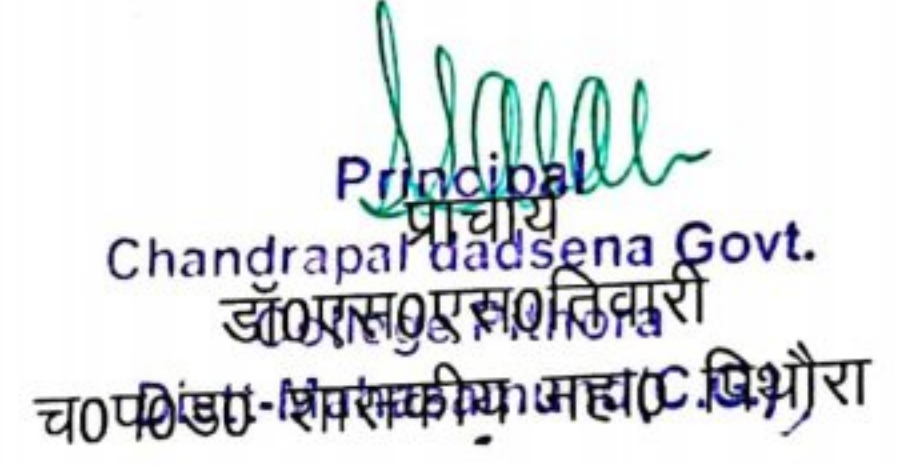 Principal
प्राचार्य
Chandrapal dadsena Govt.
डॉ0एस0एस0तिवारी
College Pithora
च0पा0डा0 शासकीय महा0 पिथौरा
Distt.-Mahasamund (C.G.)